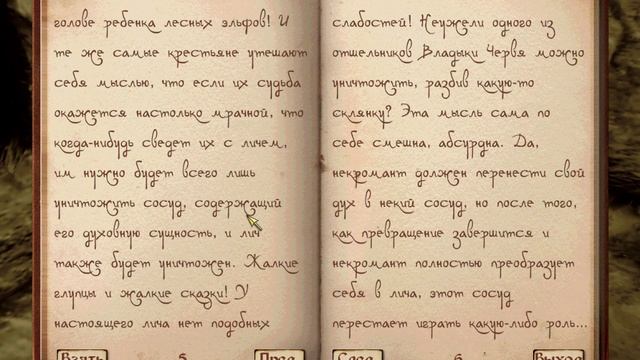 голове ребенка лесных эльфов! И
те же самые крестьяне утешают
себя мыслью, что если их судьба
окажется настолько мрачной, что
когда-нибудь сведет их с личем,
им нужно будет всего лишь
уничтожить сосуд, содержащий
его духовную сущность, и лич
также будет уничтожен. Жалкие
глупцы и жалкие сказки! У
настоящего лича нет подобных
Взять 5 След
слабостей! Неужели одного из
отшельников Владыки Червя можно
уничтожить, разбив какую-то
склянку? Эта мысль сама по
себе смешна, абсурдна. Да,
некромант должен перенести свой
дух в некий сосуд, но после того,
как превращение завершится и
некромант полностью преобразует
себя в лича, этот сосуд
перестает играть какую-либо роль...
6 Выход